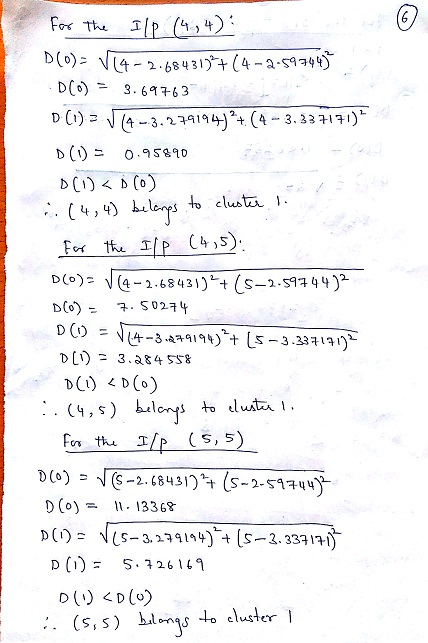 6
For the I/p (4,4):
D(0) = √(4-2.68431)²+(4-2.59744)²
D(0) = 3.69763
D(1) = √(4-3.279194)²+(4-3.337171)²
D(1) = 0.95890
D(1) < D(0)
∴ (4,4) belongs to cluster 1.
For the I/p (4,5):
D(0) = √(4-2.68431)²+(5-2.59744)²
D(0) = 7.50274
D(1) = √(4-3.279194)²+(5-3.337171)²
D(1) = 3.284558
D(1) < D(0)
∴ (4,5) belongs to cluster 1.
For the I/p (5,5)
D(0) = √(5-2.68431)²+(5-2.59744)²
D(0) = 11.13368
D(1) = √(5-3.279194)²+(5-3.337171)²
D(1) = 5.726169
D(1) < D(0)
∴ (5,5) belongs to cluster 1